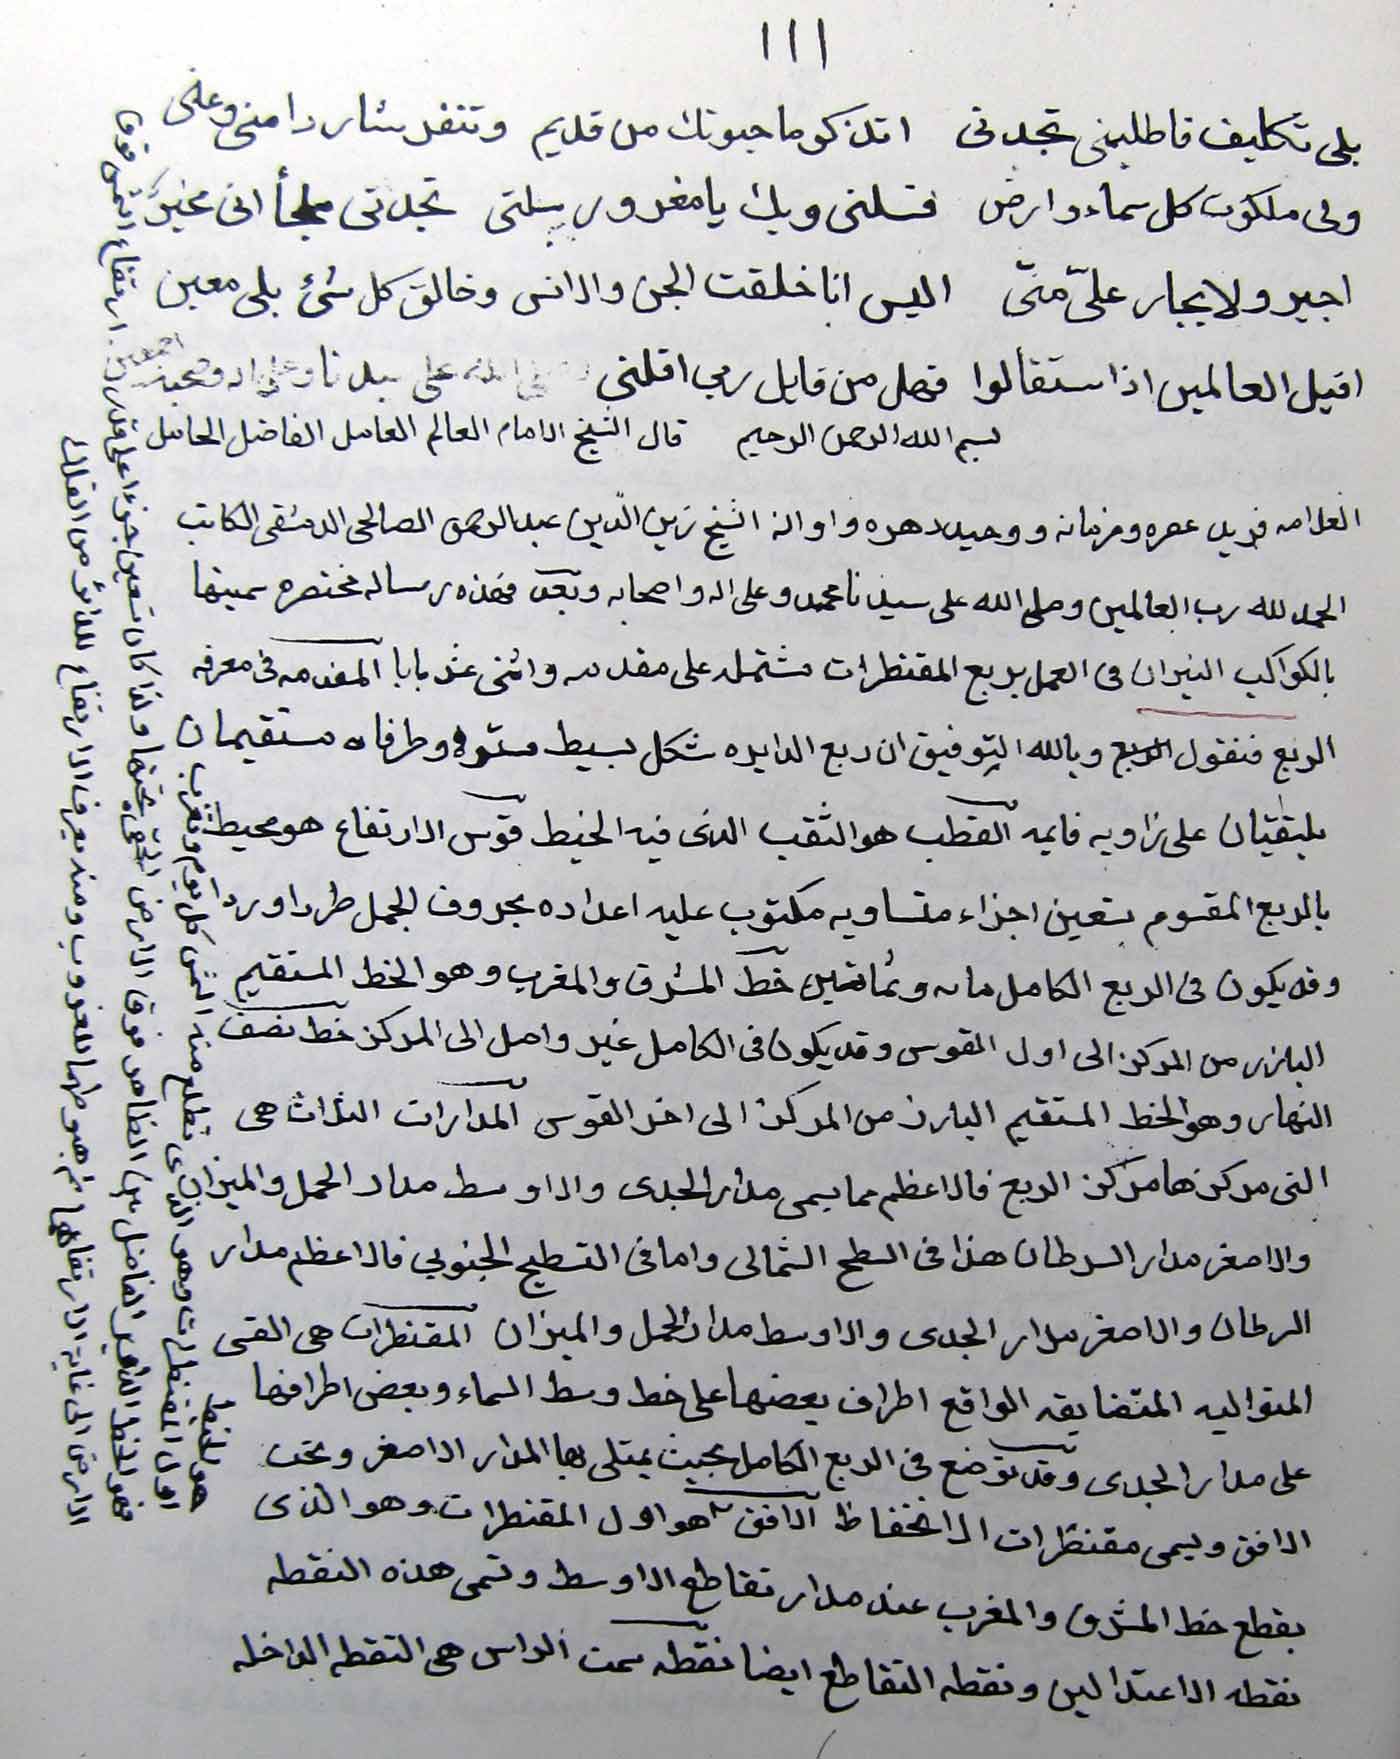 ١١١
بلى تكليف فاطلبنى تجدنى اتذكر ما حبوتك من قديم وتنفر شاردا منى وعنى
ولى ملكوت كل سماء وارض فسلنى ويك يا مغرور سلنى تجدنى ملجأ انى مجير
اجير ولا يجار علىّ منّى اليس انا خلقت الجن والانس وخالق كل شئ بلى معين
اقيل العالمين اذا ستقالوا فهل من قايل رب اقلنى على سيدنا وعلى اله وصحبه اجمعين
بسم الله الرحمن الرحيم قال الشيخ الامام العالم العامل الفاضل الكامل
العلامه فريد عصره وزمانه ووحيد دهره واوانه الشيخ زين الدّين عبد الرحمن الصالحى الدمشقى الكاتب
الحمد لله رب العالمين وصلى الله على سيدنا محمد وعلى اله واصحابه وبعد فهذه رساله مختصره سميتها
بالكواكب النيرات فى العمل بربع المقنطرات مشتمله على مقدمه واثنى عشر بابا المقدمه فى معرفه
الربع فنقول وبالله التوفيق ان ربع الدايره شكل بسيط مستو وطرفاه مستقيمان
يلتقيان على زاويه قايمه القطب هو الثقب الذى فيه الخيط قوس الارتفاع هو محيط
بالربع المقسوم بتسعين اجزاء متساويه مكتوب عليه اعداده بحروف الجمل طردا وردا
وقد يكون فى الربع الكامل مايه وثمانين خط المشرق والمغرب وهو الخط المستقيم
البارز من المركز الى اول القوس وقد يكون فى الكامل غير واصل الى المركز خط نصف
النهار وهو الخط المستقيم البارز من المركز الى اخر القوس المدارات الثلاث هى
التى مركزها مركز الربع فالاعظم مما يسمى مدار الجدى والاوسط مدار الحمل والميزان
والاصغر مدار السرطان هذا فى السطح الشمالى واما فى التسطيح الجنوبى فالاعظم مدار
السرطان والاصغر مدار الجدى والاوسط مدار الحمل والميزان المقنطرات هى القسى
المتواليه المتضايقه الواقع اطراف بعضها على خط وسط السماء وبعض اطرافها
على مدار الجدى وقد توضع فى الربع الكامل بحيث يمتلى بها المدار الاصغر وتحت
الافق ويسمى مقنطرات الانخفاظ الافق هو اول المقنطرات وهو الذى
يقطع خط المشرق والمغرب عند مدار تقاطع الاوسط وتسمى هذه النقطه
نقطه الاعتدالين ونقطه التقاطع ايضا نقطه سمت الراس هى النقطه الداخله
هو الخيط
اول المقنطرات وهو الذى تطلع منه الشمس كل يوم وتغرب
فهو الخط الفاضل بين الظاهر فوق الارض تحتها
الارض الى غاية ارتفاعها ثم هبوطها للغروب ومنه يعرف الارتفاع